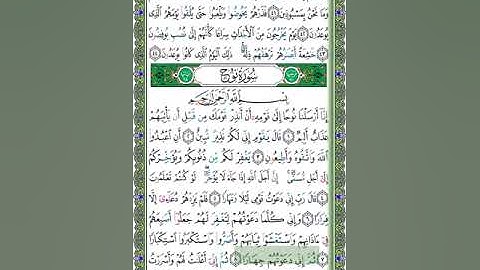 وَمَا نَحْنُ بِمَسْبُوقِينَ ﴿٤١﴾ فَذَرْهُمْ يَخُوضُوا۟ وَيَلْعَبُوا۟ حَتَّىٰ يُلَـٰقُوا۟ يَوْمَهُمُ ٱلَّذِى
يُوعَدُونَ ﴿٤٢﴾ يَوْمَ يَخْرُجُونَ مِنَ ٱلْأَجْدَاثِ سِرَاعًا كَأَنَّهُمْ إِلَىٰ نُصُبٍ يُوفِضُونَ
﴿٤٣﴾ خَـٰشِعَةً أَبْصَـٰرُهُمْ تَرْهَقُهُمْ ذِلَّةٌ ذَٰلِكَ ٱلْيَوْمُ ٱلَّذِى كَانُوا۟ يُوعَدُونَ ﴿٤٤﴾
سُورَةُ نُوحٍ
بِسْمِ ٱللَّهِ ٱلرَّحْمَـٰنِ ٱلرَّحِيمِ
إِنَّآ أَرْسَلْنَا نُوحًا إِلَىٰ قَوْمِهِۦٓ أَنْ أَنذِرْ قَوْمَكَ مِن قَبْلِ أَن يَأْتِيَهُمْ
عَذَابٌ أَلِيمٌ ﴿١﴾ قَالَ يَـٰقَوْمِ إِنِّى لَكُمْ نَذِيرٌ مُّبِينٌ ﴿٢﴾ أَنِ ٱعْبُدُوا۟
ٱللَّهَ وَٱتَّقُوهُ وَأَطِيعُونِ ﴿٣﴾ يَغْفِرْ لَكُم مِّن ذُنُوبِكُمْ وَيُؤَخِّرْكُمْ
إِلَىٰٓ أَجَلٍ مُّسَمًّى إِنَّ أَجَلَ ٱللَّهِ إِذَا جَآءَ لَا يُؤَخَّرُ لَوْ كُنتُمْ تَعْلَمُونَ
﴿٤﴾ قَالَ رَبِّ إِنِّى دَعَوْتُ قَوْمِى لَيْلًا وَنَهَارًا ﴿٥﴾ فَلَمْ يَزِدْهُمْ دُعَآءِىٓ إِلَّا
فِرَارًا ﴿٦﴾ وَإِنِّى كُلَّمَا دَعَوْتُهُمْ لِتَغْفِرَ لَهُمْ جَعَلُوٓا۟ أَصَـٰبِعَهُمْ
فِىٓ ءَاذَانِهِمْ وَٱسْتَغْشَوْا۟ ثِيَابَهُمْ وَأَصَرُّوا۟ وَٱسْتَكْبَرُوا۟ ٱسْتِكْبَارًا
﴿٧﴾ ثُمَّ إِنِّى دَعَوْتُهُمْ جِهَارًا ﴿٨﴾ ثُمَّ إِنِّىٓ أَعْلَنتُ لَهُمْ وَأَسْرَرْتُ